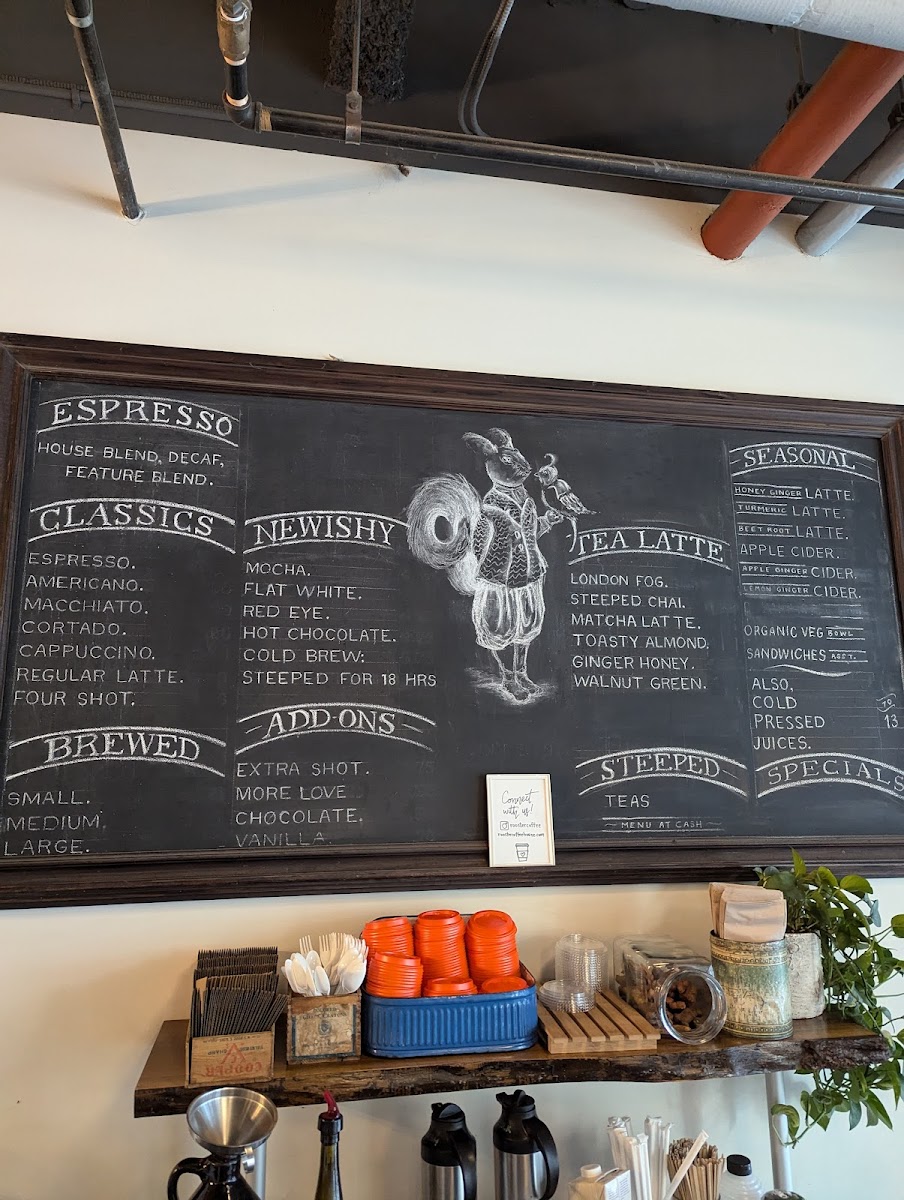 ESPRESSO
HOUSE BLEND, DECAF,
FEATURE BLEND.
CLASSICS
ESPRESSO.
AMERICANO.
MACCHIATO.
CORTADO.
CAPPUCCINO.
REGULAR LATTE.
FOUR SHOT.
BREWED
SMALL.
MEDIUM.
LARGE.
NEWISHY
MOCHA.
FLAT WHITE.
RED EYE.
HOT CHOCOLATE.
COLD BREW:
STEEPED FOR 18 HRS
ADD-ONS
EXTRA SHOT.
MORE LOVE
CHOCOLATE.
VANILLA.
TEA LATTE
LONDON FOG.
STEEPED CHAI.
MATCHA LATTE.
TOASTY ALMOND.
GINGER HONEY.
WALNUT GREEN.
STEEPED
TEAS
MENU AT CASH
SEASONAL
HONEY GINGER LATTE.
TURMERIC LATTE.
BEET ROOT LATTE.
APPLE CIDER.
APPLE GINGER CIDER.
LEMON GINGER CIDER.
ORGANIC VEG BOWL
SANDWICHES
ALSO,
COLD
PRESSED 13
JUICES.
SPECIALS
Connect
with us!
COOPER